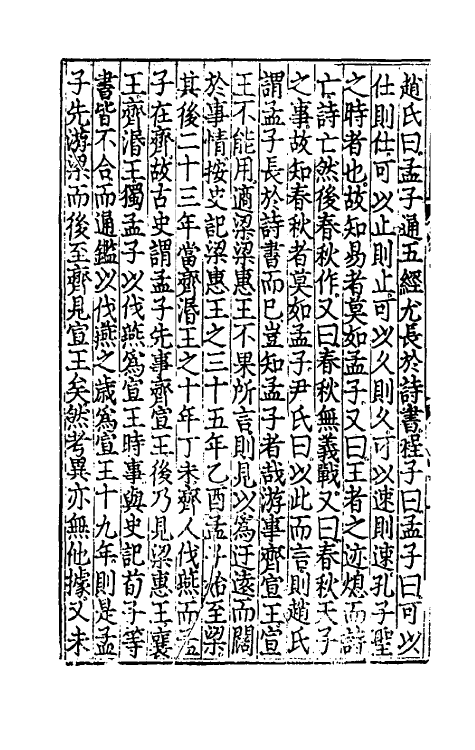 趙氏曰孟子通五經尤長於詩書程子曰孟子曰可以
仕則仕可以止則止可以久則久可以速則速孔子聖
之時者也故知易者莫如孟子又曰王者之迹熄而詩
亡詩亡然後春秋作又曰春秋無義戰又曰春秋天子
之事故知春秋者莫如孟子尹氏曰以此而言則趙氏
謂孟子長於詩書而已豈知孟子者哉游事齊宣王宣
王不能用適梁梁惠王不果所言則見以爲迂遠而闊
於事情按史記梁惠王之三十五年乙酉孟子始至梁
其後二十三年當齊湣王之十年丁未齊人伐燕而孟
子在齊故古史謂孟子先事齊宣王後乃見梁惠王襄
王齊湣王獨孟子以伐燕爲宣王時事與史記荀子等
書皆不合而通鑑以伐燕之歲爲宣王十九年則是孟
子先游梁而後至齊見宣王矣然考異亦無他據又未